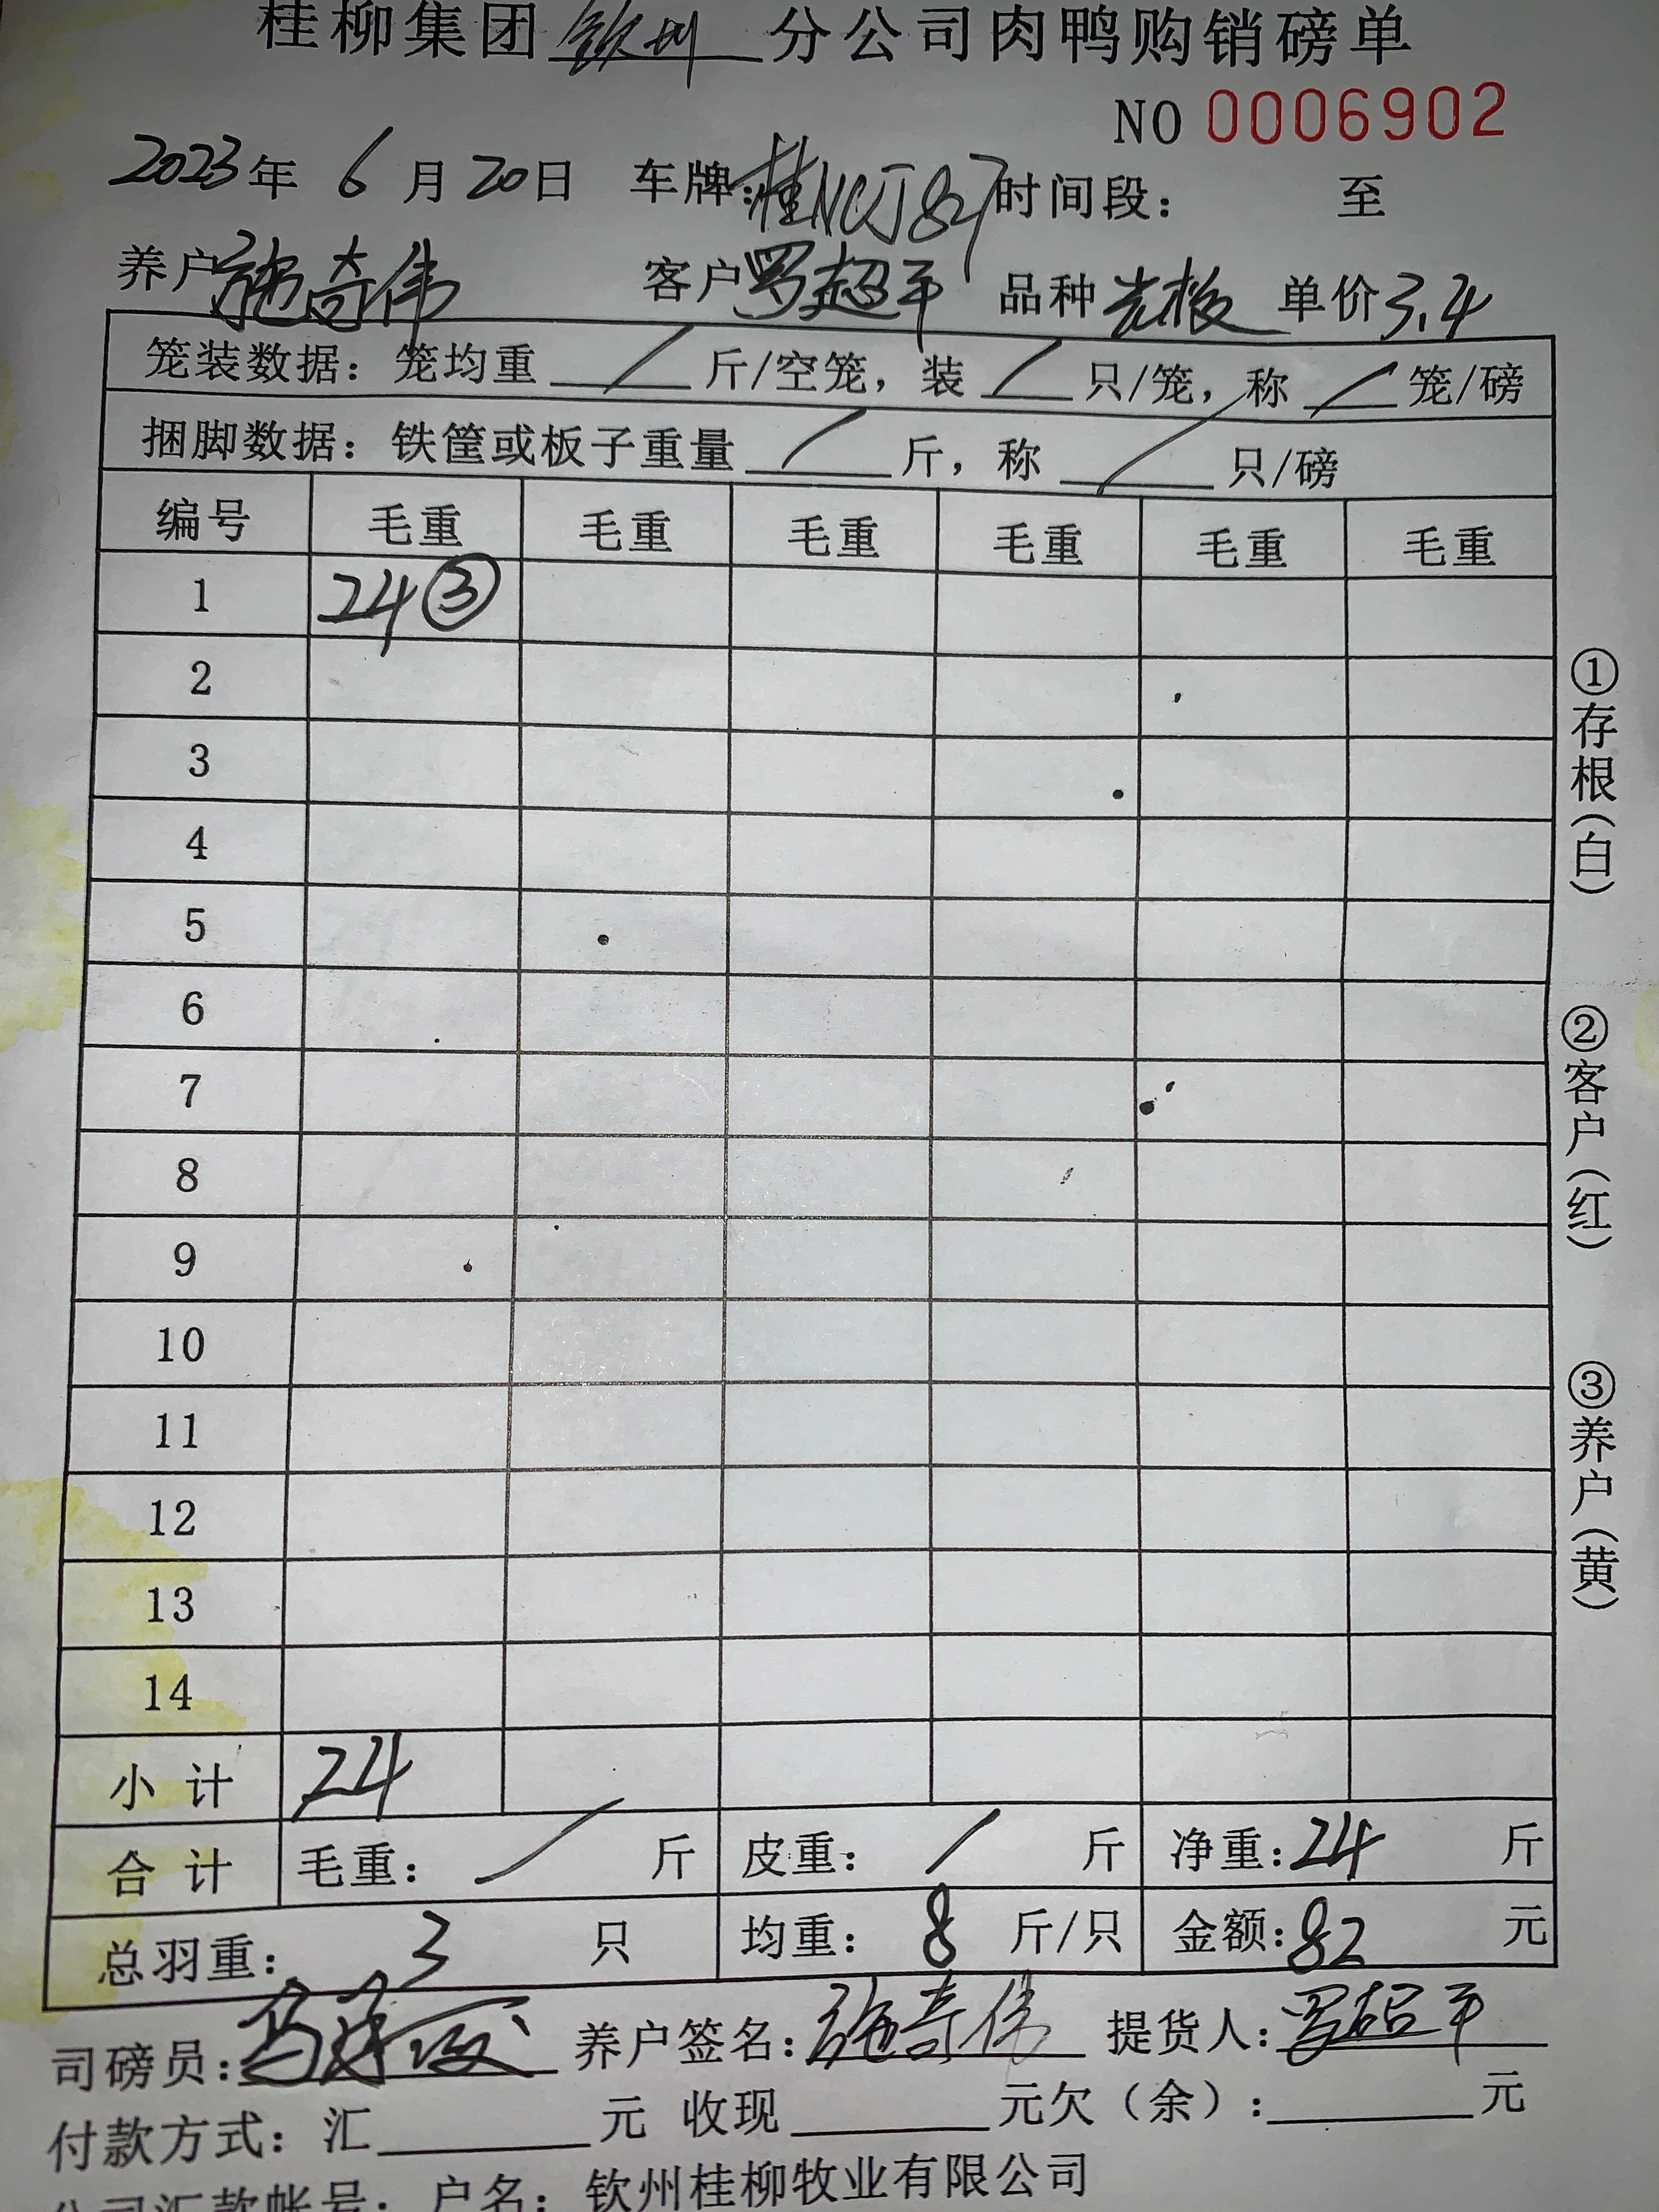 桂柳集团 钦州 分公司肉鸭购销磅单
NO 0006902
2023年 6 月 20日 车牌: 桂NCJ827 时间段: 至
养户 施奇伟 客户 罗超平 品种 单价 3.4
笼装数据: 笼均重 / 斤/空笼, 装 / 只/笼, 称 / 笼/磅
捆脚数据: 铁筐或板子重量 / 斤, 称 / 只/磅
编号 毛重 毛重 毛重 毛重 毛重 毛重
1 24 ③
2
3
4
5
6
7
8
9
10
11
12
13
14
小 计 24
合 计 毛重: / 斤 皮重: / 斤 净重: 24 斤
总羽重: 3 只 均重: 8 斤/只 金额: 82 元
司磅员: 养户签名: 施奇伟 提货人: 罗超平
付款方式: 汇 元 收现 元欠(余): 元
公司汇款帐号: 户名: 钦州桂柳牧业有限公司
①存根(白)
②客户(红)
③养户(黄)